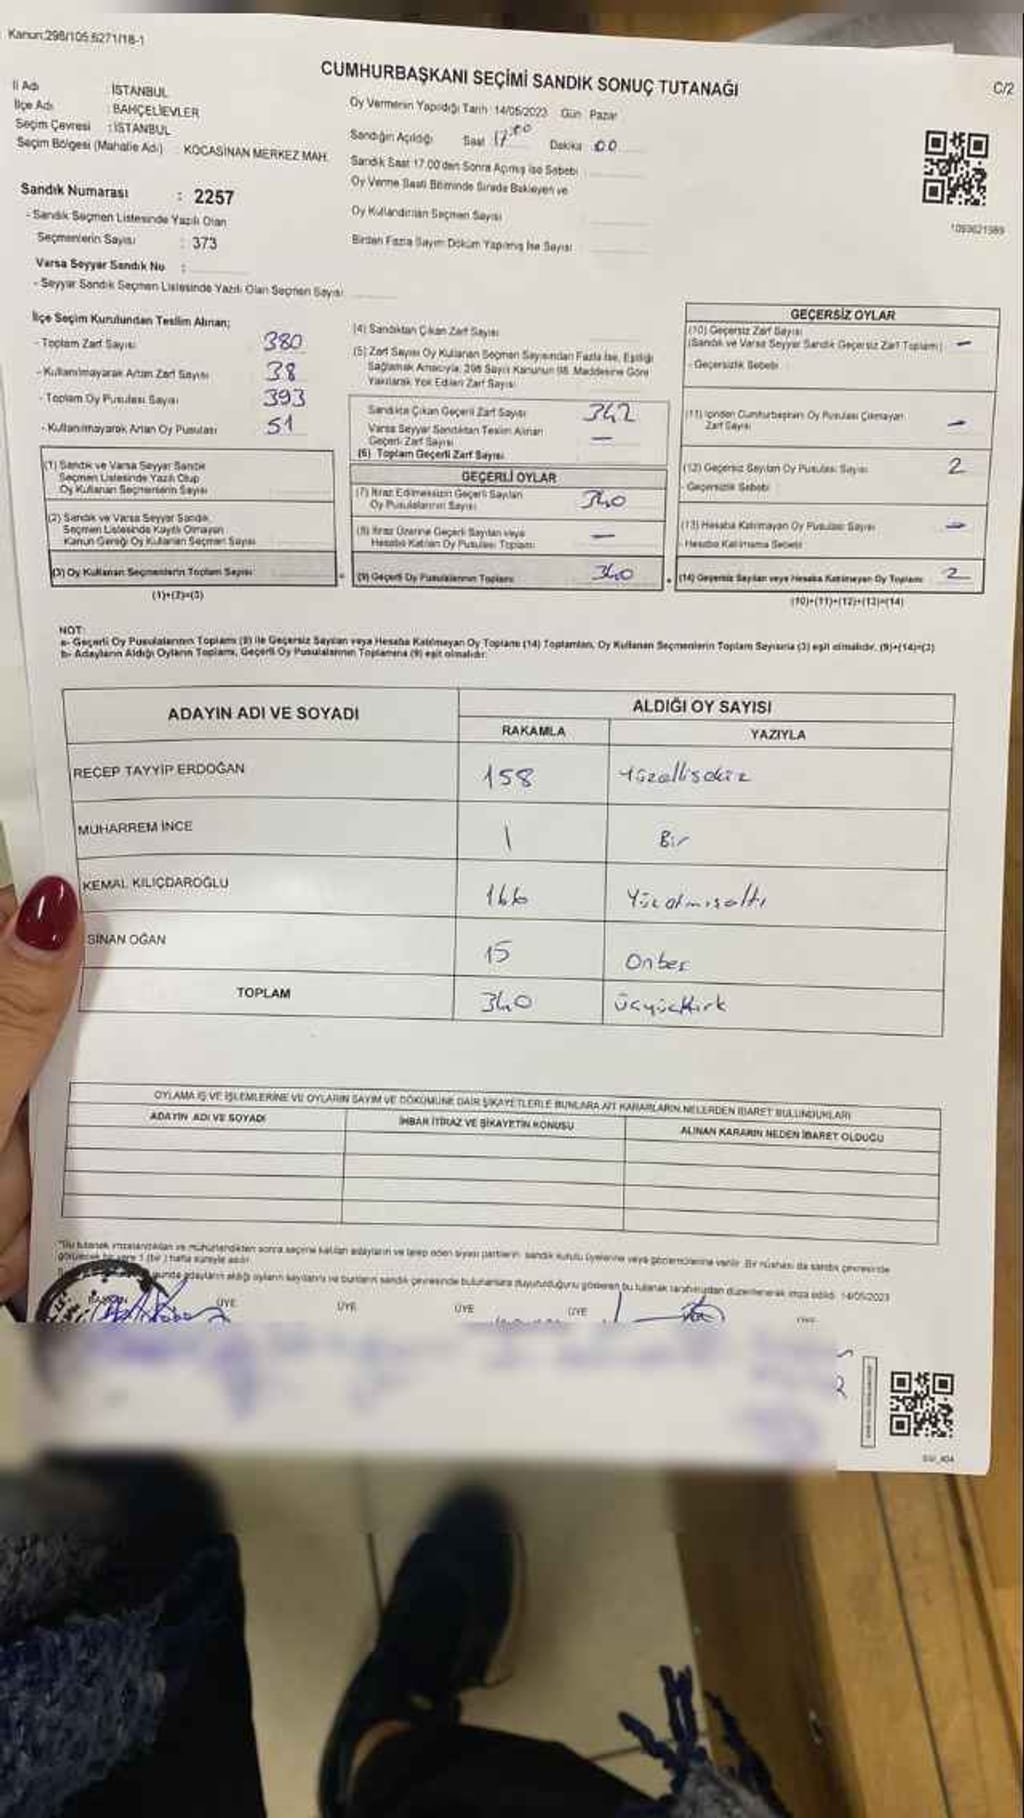 Kanun:298/105,5271/18-1
CUMHURBAŞKANI SEÇİMİ SANDIK SONUÇ TUTANAĞI
C/2
İl Adı : İSTANBUL
İlçe Adı : BAHÇELİEVLER
Seçim Çevresi : İSTANBUL
Seçim Bölgesi (Mahalle Adı) : KOCASİNAN MERKEZ MAH.
Oy Vermenin Yapıldığı Tarih :14/05/2023 Gün : Pazar
Sandığın Açıldığı Saat 17:00 Dakika 00
Sandık Saat 17.00'den Sonra Açılmış İse Sebebi :
Oy Verme Saati Bitiminde Sırada Bekleyen ve
Oy Kullandırılan Seçmen Sayısı :
Birden Fazla Sayım Döküm Yapılmış İse Sayısı :
1093621989
Sandık Numarası : 2257
- Sandık Seçmen Listesinde Yazılı Olan
Seçmenlerin Sayısı : 373
Varsa Seyyar Sandık No :
- Seyyar Sandık Seçmen Listesinde Yazılı Olan Seçmen Sayısı:
İlçe Seçim Kurulundan Teslim Alınan;
- Toplam Zarf Sayısı : 380
- Kullanılmayarak Artan Zarf Sayısı : 38
- Toplam Oy Pusulası Sayısı : 393
- Kullanılmayarak Artan Oy Pusulası : 51
(1) Sandık ve Varsa Seyyar Sandık
Seçmen Listesinde Yazılı Olup
Oy Kullanan Seçmenlerin Sayısı :
(2) Sandık ve Varsa Seyyar Sandık,
Seçmen Listesinde Kayıtlı Olmayan
Kanun Gereği Oy Kullanan Seçmen Sayısı :
(3) Oy Kullanan Seçmenlerin Toplam Sayısı :
(1)+(2)=(3)
(4) Sandıktan Çıkan Zarf Sayısı :
(5) Zarf Sayısı Oy Kullanan Seçmen Sayısından Fazla İse, Eşitliği
Sağlamak Amacıyla; 298 Sayılı Kanunun 98. Maddesine Göre
Yakılarak Yok Edilen Zarf Sayısı :
Sandıkta Çıkan Geçerli Zarf Sayısı : 342
Varsa Seyyar Sandıktan Teslim Alınan
Geçerli Zarf Sayısı : —
(6) Toplam Geçerli Zarf Sayısı :
GEÇERLİ OYLAR
(7) İtiraz Edilmeksizin Geçerli Sayılan
Oy Pusulalarının Sayısı : 340
(8) İtiraz Üzerine Geçerli Sayılan veya
Hesaba Katılan Oy Pusulası Toplamı : —
(9) Geçerli Oy Pusulalarının Toplamı : 340
GEÇERSİZ OYLAR
(10) Geçersiz Zarf Sayısı
(Sandık ve Varsa Seyyar Sandık Geçersiz Zarf Toplamı) : —
- Geçersizlik Sebebi :
(11) İçinden Cumhurbaşkanı Oy Pusulası Çıkmayan
Zarf Sayısı : —
(12) Geçersiz Sayılan Oy Pusulası Sayısı : 2
- Geçersizlik Sebebi :
(13) Hesaba Katılmayan Oy Pusulası Sayısı : —
- Hesaba Katılmama Sebebi :
(14) Geçersiz Sayılan veya Hesaba Katılmayan Oy Toplamı : 2
(10)+(11)+(12)+(13)=(14)
NOT:
a- Geçerli Oy Pusulalarının Toplamı (9) ile Geçersiz Sayılan veya Hesaba Katılmayan Oy Toplamı (14) Toplamları, Oy Kullanan Seçmenlerin Toplam Sayısına (3) eşit olmalıdır. (9)+(14)=(3)
b- Adayların Aldığı Oyların Toplamı, Geçerli Oy Pusulalarının Toplamına (9) eşit olmalıdır.
ADAYIN ADI VE SOYADI ALDIĞI OY SAYISI
RAKAMLA YAZIYLA
RECEP TAYYİP ERDOĞAN 158 Yüzellisekiz
MUHARREM İNCE 1 Bir
KEMAL KILIÇDAROĞLU 166 Yüzatmışaltı
SİNAN OĞAN 15 Onbeş
TOPLAM 340 Üçyüzkırk
OYLAMA İŞ VE İŞLEMLERİNE VE OYLARIN SAYIM VE DÖKÜMÜNE DAİR ŞİKAYETLERLE BUNLARA AİT KARARLARIN NELERDEN İBARET BULUNDUKLARI
ADAYIN ADI VE SOYADI İHBAR İTİRAZ VE ŞİKAYETİN KONUSU ALINAN KARARIN NEDEN İBARET OLDUĞU
*Bu tutanak imzalandıktan ve mühürlendikten sonra seçime katılan adayların ve talep eden siyasi partilerin sandık kurulu üyelerine veya gözlemcilerine verilir. Bir nüshası da sandık çevresinde
görülecek bir yere 1 (bir) hafta süreyle asılır.
adayların aldığı oyların sayılarını ve bunların sandık çevresinde bulunanlara duyurulduğunu gösteren bu tutanak tarafımızdan düzenlenerek imza edildi. 14/05/2023
BAŞKAN ÜYE ÜYE ÜYE ÜYE